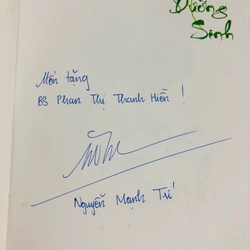 Dưỡng
Sinh
Mến tặng
BS Phan Thị Thanh Hiền !
Nguyễn Mạnh Trí